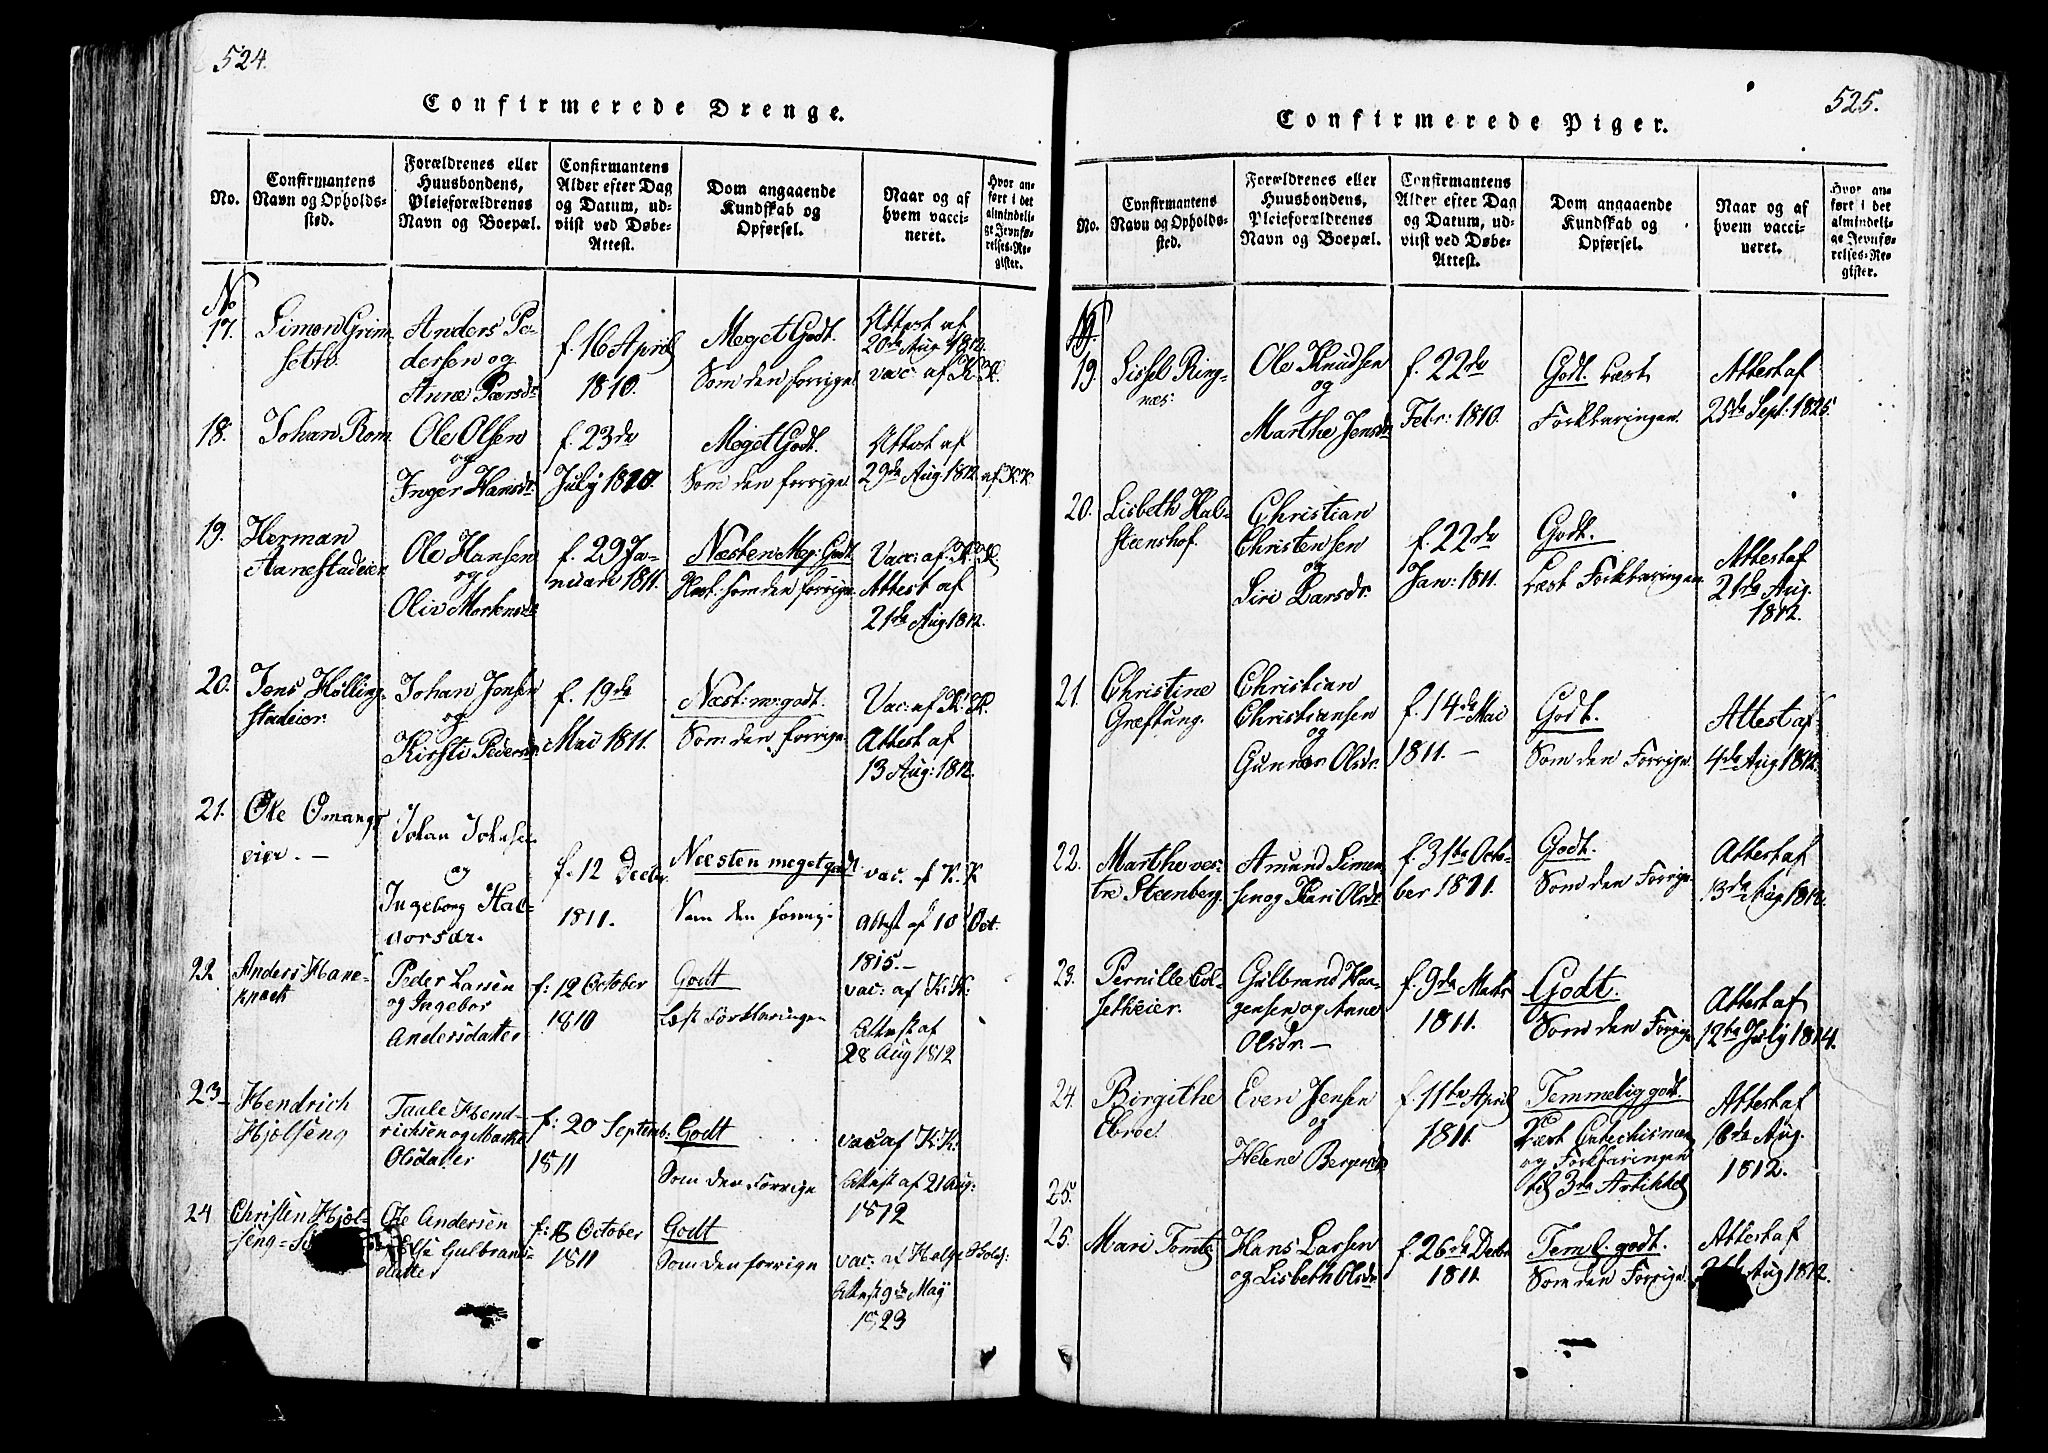 524.
Confirmerede Drenge.
No.
Confirmantens
Navn og Opholds-
sted.
Forældrenes eller
Huusbondens,
Pleieforældrenes
Navn og Boepæl.
Confirmantens
Alder efter Dag
og Datum, ud-
viist ved Døbe-
Attest.
Dom angaaende
Kundskab og
Opførsel.
Naar og af
hvem vacci-
neret.
Hvor an-
ført i det
almindeli-
ge Jevnfø-
relses-Re-
gister.
No
17.
Simon Grim-
seth.
Anders Pe-
dersen og
Anne Pærsdr
f. 16 April
1810.
Meget Godt.
Som den forrige
Attest af
20de Aug 1812.
vac af K. K.
18.
Johan Rom
Ole Olsen
og
Inger Hansdr.
f. 23de
July 1810.
Meget Godt.
Som den forrige
Attest af
29de Aug 1812. af K. K.
19.
Herman
Aanestadeier
Ole Hansen
og
Oliv Mortensdr
f. 29 Ja-
nuari 1811.
Næsten Meg: Godt
som den forrige
Vac: af K. K.
Attest af
21de Aug 1812.
20.
Jens Hølling-
stadeier.
Johan Jensen
og
Kirsti Pedersdr
f. 19de
Mai 1811.
Næst: m: godt.
Som den forrige
Vac: af K: K.
Attest af
13 Aug: 1812.
21.
Ole Omangs-
eier. —
Johan Johnsen
og
Ingeborg Hal-
vorsdr.
f. 12 Decbr
1811.
Næsten meget godt
Som den forrig-
vac. af K. K
Attest af 10 Oct.
1815. —
22
Anders Hane-
knæk
Peder Larsen
og Ingebor
Andersdatter
f: 12 October
1810
Godt
Læst Forklaringen
vac: af K: K:
Attest af
28 Aug 1812
23
Hendrich
Hjølseng
Taale Hend-
richsen og Marte
Olsdatter
f: 20 Septemb:
1811
Godt
Som den Forrige
vac af K: K:
Attest af 21 Aug:
1812
24
Christen Hjøl-
seng-
Ole Andersen
Gulbrands-
datter
October
1811
Godt
Som den forrige
vac: af Helge
Attest 9de May
1823
525.
Confirmerede Piger.
No.
Confirmantens
Navn og Opholds-
sted.
Forældrenes eller
Huusbondens,
Pleieforældrenes
Navn og Boepæl.
Confirmantens
Alder efter Dag
og Datum, ud-
viist ved Døbe-
Attest.
Dom angaaende
Kundskab og
Opførsel.
Naar og af
hvem vacci-
neret.
Hvor an-
ført i det
almindeli-
ge Jevnfø-
relses-Re-
gister.
19.
Sissel Ring-
næs:
Ole Knudsen
og
Marthe Jensdr
f. 22de
Febr: 1810.
Godt. Læst
Forklaringen.
Attest af
25de Sept: 1825.
20.
Lisbeth Hal-
steenshof.
Christian
Christensen
og
Siri Larsdr.
f. 22de
Jan: 1811.
Godt.
Læst Forklaringen
Attest af
21de Aug.
1812.
21.
Christine
Græftung.
Christian
Christiansen
og
Gunnor Olsdr.
f. 14de Mai
1811. —
Godt.
Som den Forrige
Attest af
4de Aug 1812.
22.
Marthe ves-
tre Steenberg.
Amund Simen-
sen og Kari Olsdr.
f. 31te Octo-
ber 1811.
Godt.
Som den Forrige
Attest af
13de Aug 1812.
23.
Pernille Col-
setheier.
Gulbrand Haa-
gensen og Anne
Olsdr. —
f. 9de Marts
1811.
Godt.
Som den Forrige
Attest af
12te July 1814.
24.
Birgithe
Ebroe.
Even Jensen
og
Helene Bergersdr
f. 11te April
1811.
Temmelig godt.
Læst Catechismen
og Forklaringen
til 3de Artikkel
Attest af
18de Aug.
1812.
25.
25.
Mari Tomte
Hans Larsen
og Lisbeth Olsdr
f. 26de Decbr
1811.
Teml. godt.
Som den Forrige.
Attest af
Aug 1812.